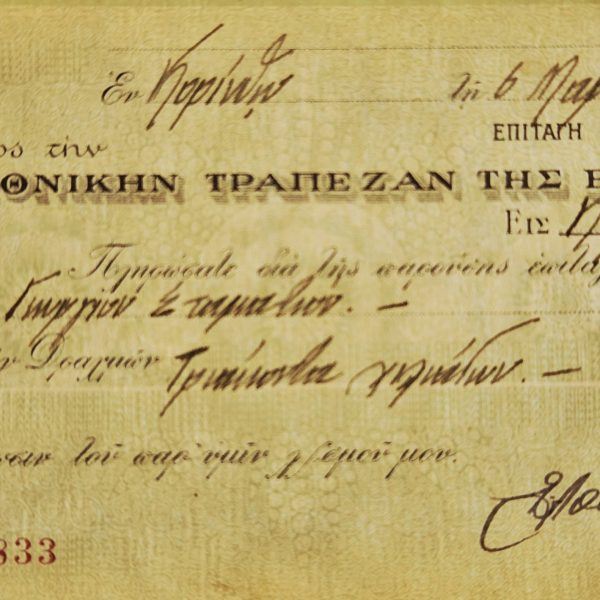 Ἐν Κορίνθῳ τῇ 6
ΕΠΙΤΑΓΗ
ος τὴν
ΘΝΙΚΗΝ ΤΡΑΠΕΖΑΝ ΤΗΣ Ε
Εις
Πληρώσατε διὰ τῆς παρούσης ἐπιτα
Γεωργίου Σταματίου. —
ν Δραχμῶν Τριάκοντα χιλιάδων. —
σιν τοῦ παρ' ὑμῖν λ)σμοῦ μου.
833